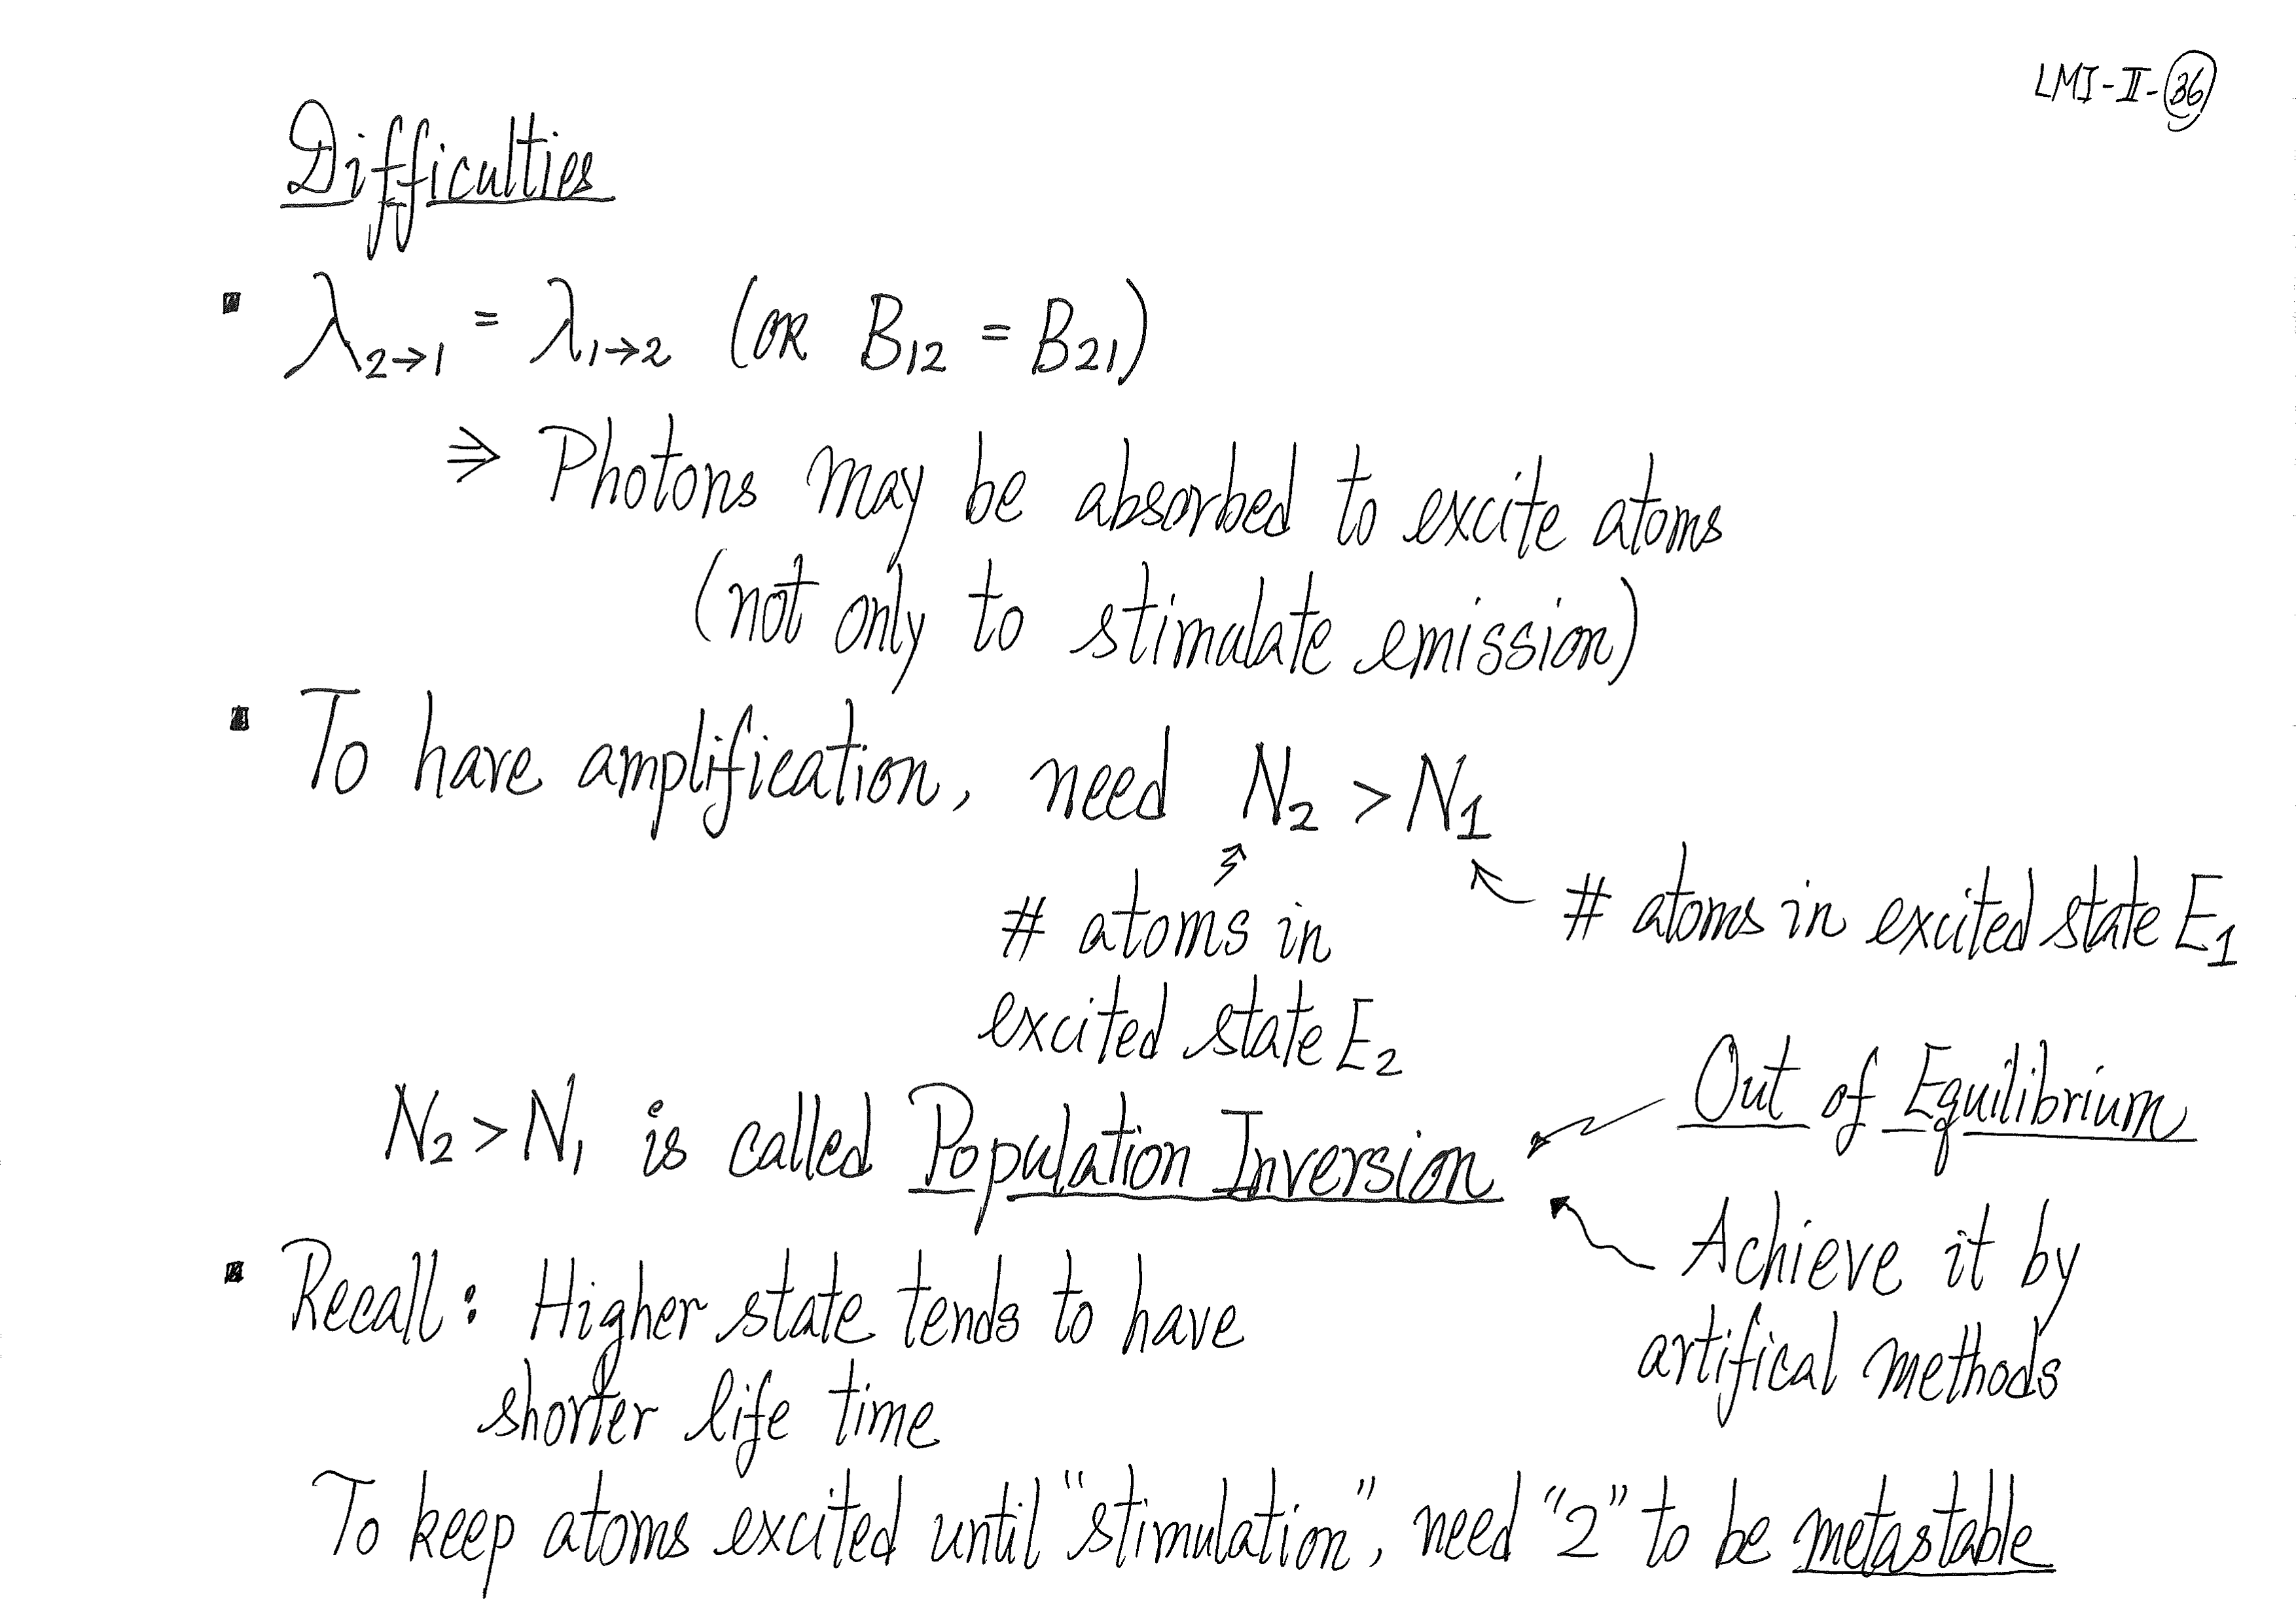 LMI-II-36
Difficulties
▪ λ₂→₁ = λ₁→₂ (OR B₁₂ = B₂₁)
⇒ Photons may be absorbed to excite atoms
(not only to stimulate emission)
▪ To have amplification, need N₂ > N₁
# atoms in
excited state E₂
# atoms in excited state E₁
N₂ > N₁ is called Population Inversion
Out of Equilibrium
Achieve it by
artifical methods
▪ Recall: Higher state tends to have
shorter life time
To keep atoms excited until "stimulation", need "2" to be metastable